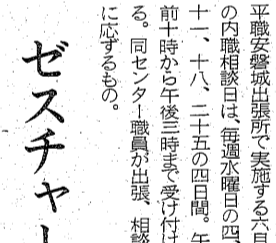 平職安磐城出張所で実施する六月
の内職相談日は、毎週水曜日の四、
十一、十八、二十五の四日間。午
前十時から午後三時まで受け付け
る。同センター職員が出張、相談
に応ずるもの。
ゼスチャー